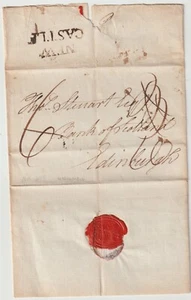 NEW
CASTLE
Thos. Steuart Esq
Bank of Scotland
Edinburgh